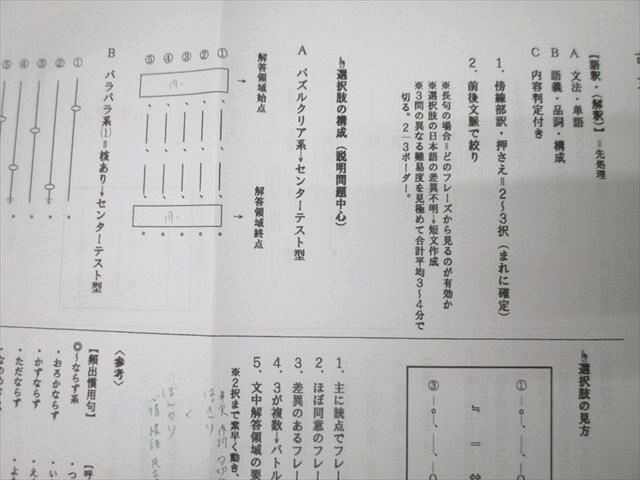 【語釈・(解釈)】=先処理
A 文法・単語
B 語義・品詞・構成
C 内容判定付き
1. 傍線部訳・押さえ=2〜3択(まれに確定)
2. 前後文脈で絞り
※長句の場合=どのフレーズから見るのが有効か
※選択肢の日本語の差異不明→短文作成
※3問の異なる難易度を見極めて合計平均3〜4分で
切る。2—3ボーダー。
選択肢の構成(説明問題中心)
A パズルクリア系→センターテスト型
解答領域始点
解答領域終点
①
②
③
④
⑤
B バラバラ系①=核あり→センターテスト型
①
②
③
④
⑤
選択肢の見方
①
③
1. 主に読点でフレー
2. ほぼ同意のフレー
3. 差異のあるフレー
4. 3が複数→バトル
5. 文中解答領域の要
※2択まで素早く動き、
はっきり
ぼんやり
〈参考〉
【頻出慣用句】
◎〜ならず系
・おろかならず
・かずならず
・ただならず